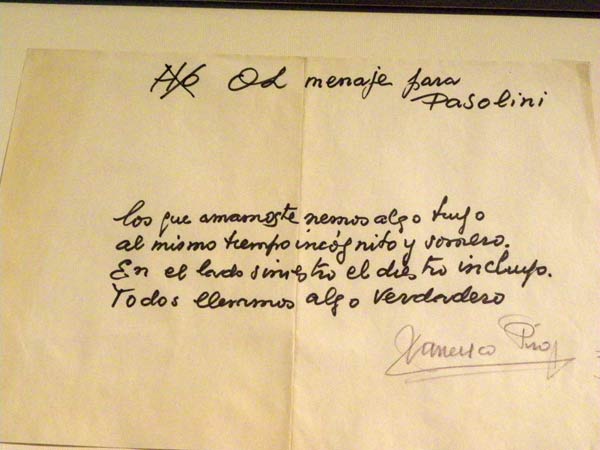 Ho OL menaje para
Pasolini
los que amamoste nemos algo tuyo
al mismo tiempo incógnito y somero.
En el lado siniestro el diestro incluyo.
Todos llevamos algo verdadero
Francisco Pino